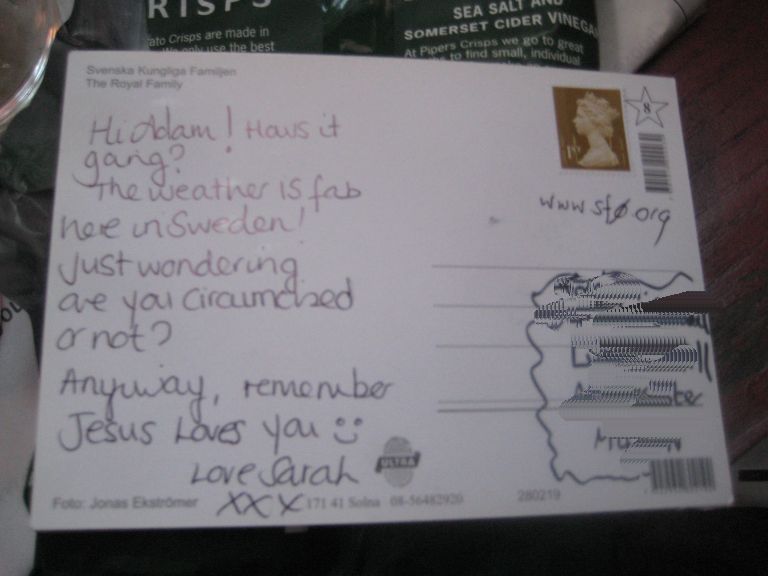 RISPS
ato Crisps are made in
only use the best
SEA SALT AND
SOMERSET CIDER VINEGA
At Pipers Crisps we go to great
to find small, individual
Svenska Kungliga Familjen
The Royal Family
Hi Adam! Hows it
gang?
The weather is fab
here in Sweden!
Just wondering
are you circumcised
or not?
Anyway, remember
Jesus Loves you
Love Sarah
XXX
8
1st
www.sf0.org
ULTRA
Foto: Jonas Ekströmer
171 41 Solna 08-56482920
280219